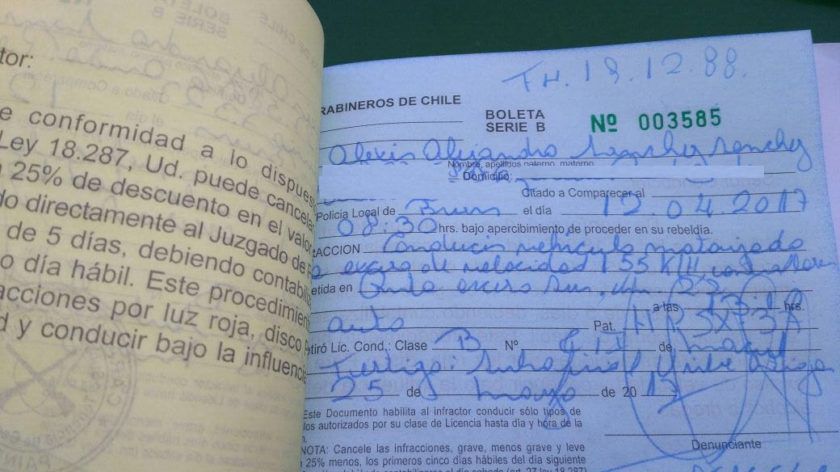 tor:
e conformidad a lo dispues
Ley 18.287, Ud. puede cancela
25% de descuento en el valor
do directamente al Juzgado de
de 5 días, debiendo contabili
o día hábil. Este procedimien
acciones por luz roja, disco
d y conducir bajo la influenci
19.12.88.
RABINEROS DE CHILE
BOLETA
SERIE B
Nº 003585
Alexis Alejandro Sanchez Sanchez
Nombre, apellidos paterno, materno
Domicilio
Citado a Comparecer al
Policía Local de Buin el día 12.04.2017
08:30 hrs. bajo apercibimiento de proceder en su rebeldía.
ACCION Conducir vehiculo motorizado
exceso de velocidad 155 K/H
etida en Ruta acceso Sur, km 22
a las hrs.
auto Pat.
etiró Lic. Cond.: Clase B Nº de
Testigo:
25 de marzo de 2017
Este Documento habilita al infractor conducir sólo tipos de
los autorizados por su clase de Licencia hasta día y hora de la
n.
Denunciante
NOTA: Cancele las infracciones, grave, menos grave y leve
25% menos, los primeros cinco días hábiles del día siguiente